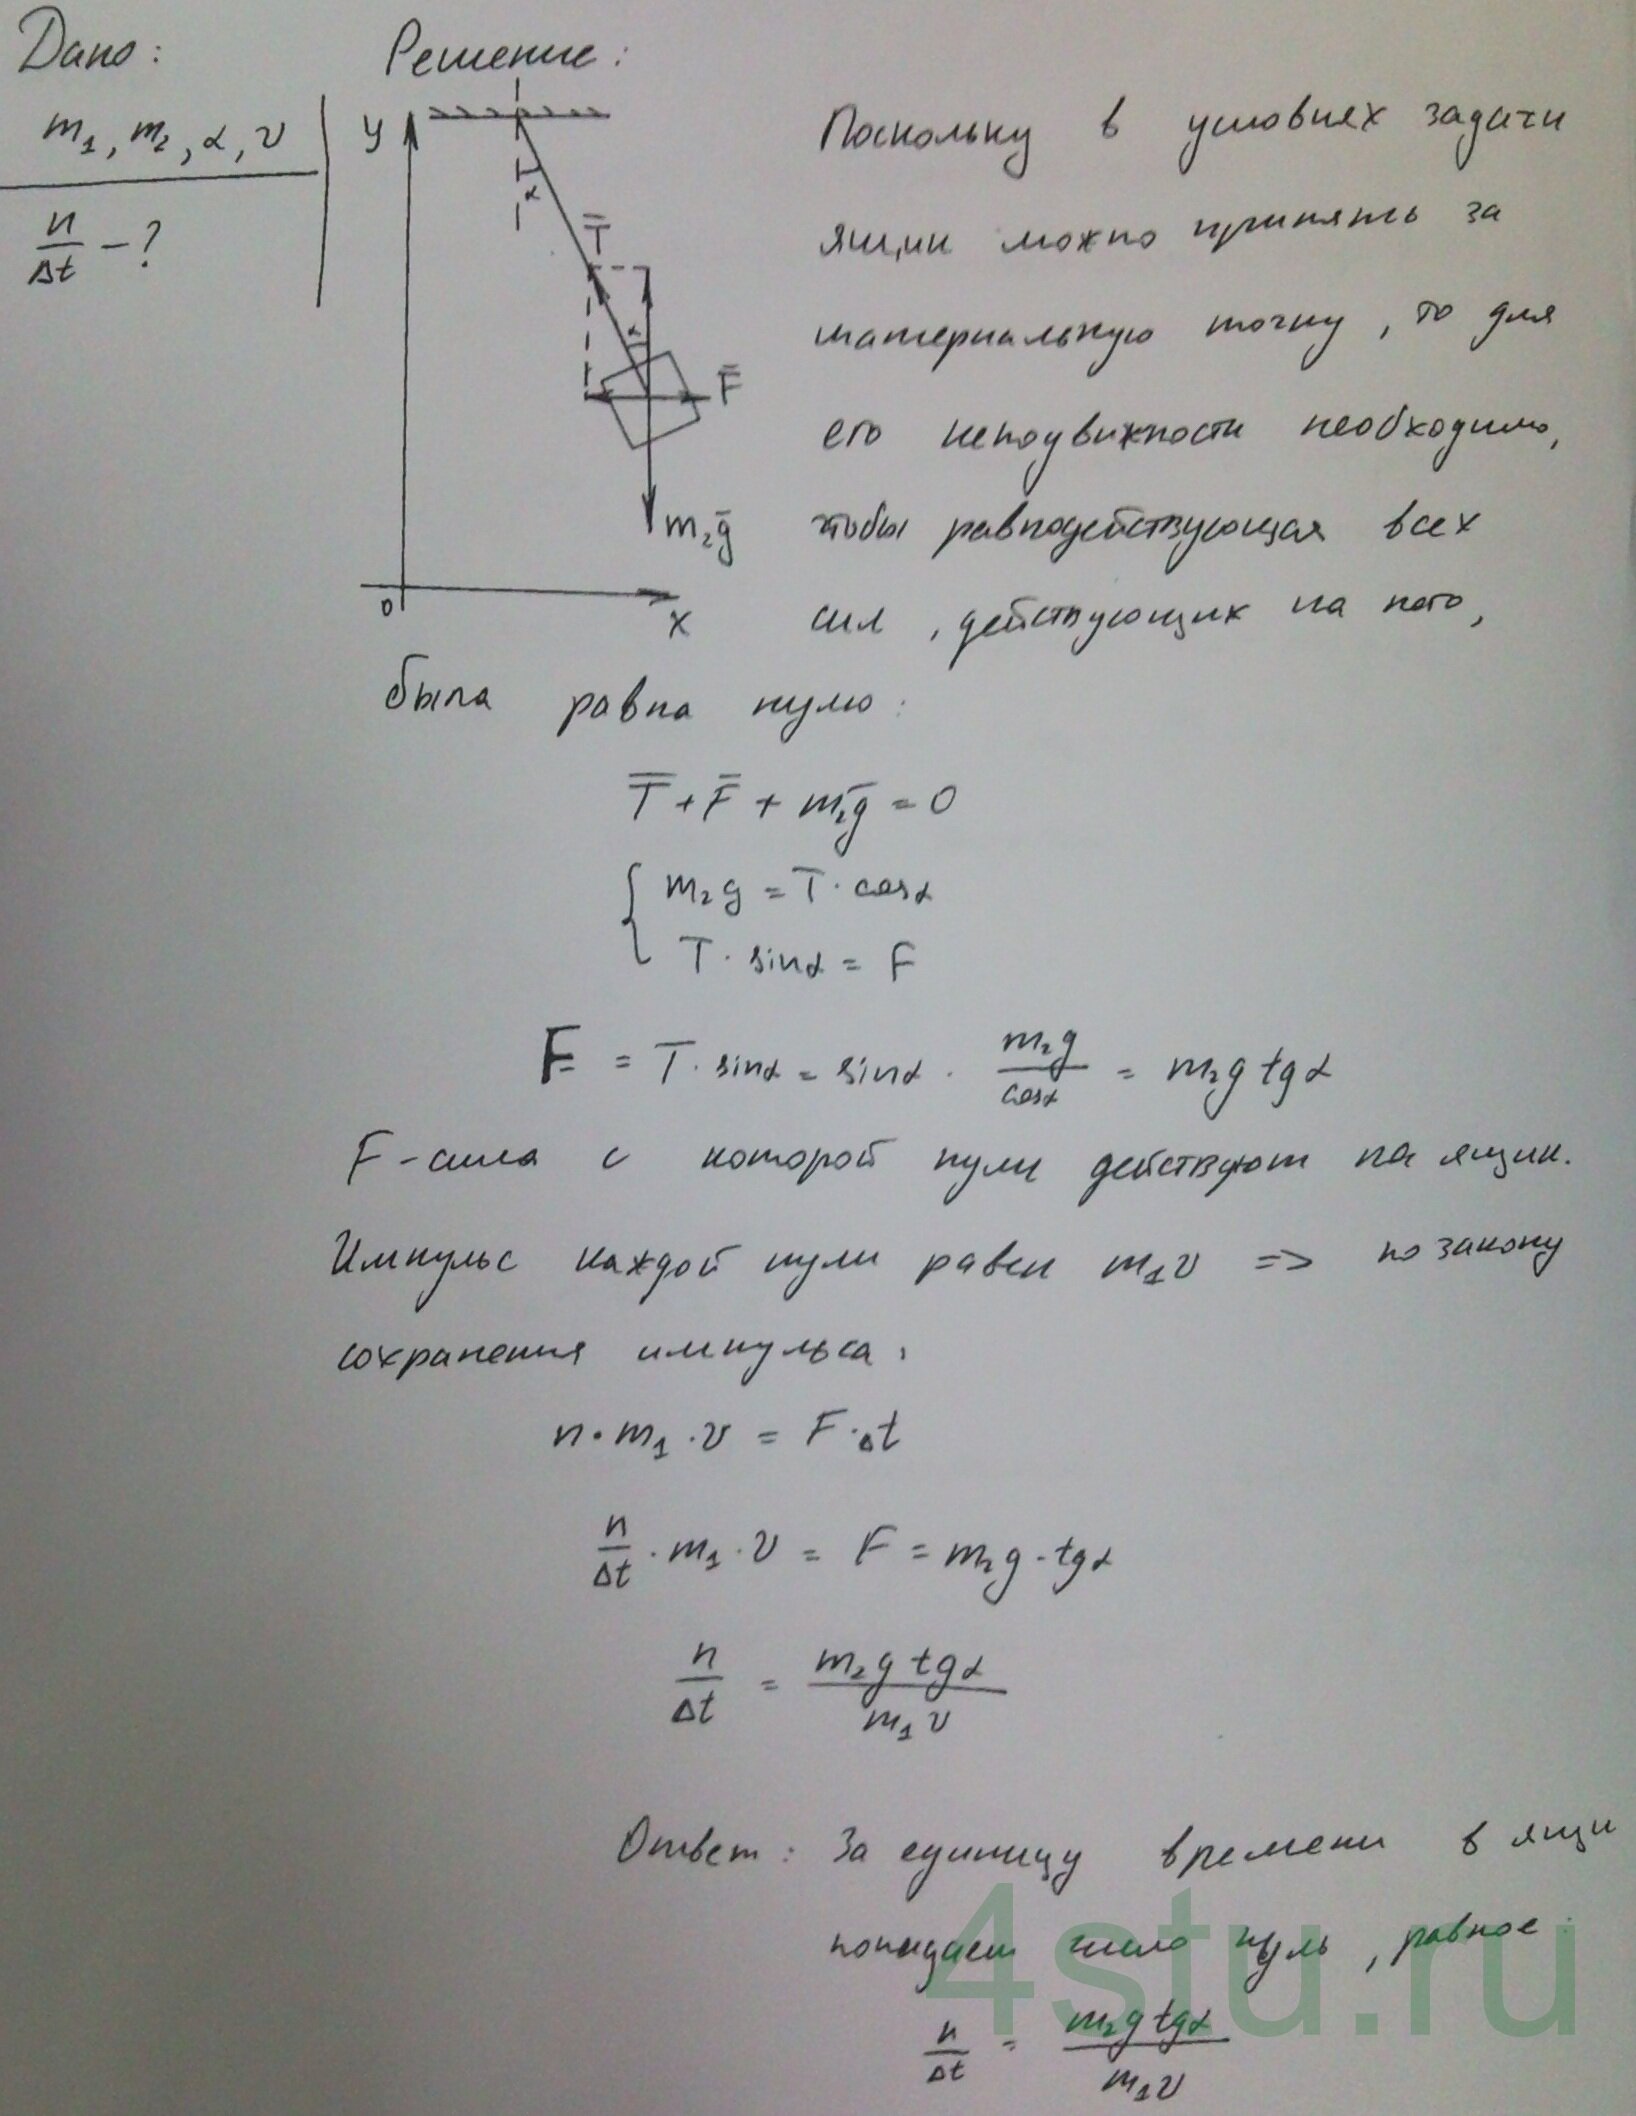 Дано:
Решение:
m₁, m₂, α, v
n/Δt - ?
y
α
T̄
α
F̄
m₂ḡ
0
x
Поскольку в условиях задачи
ящик можно принять за
материальную точку, то для
его неподвижности необходимо,
чтобы равнодействующая всех
сил, действующих на него,
была равна нулю:
T̄ + F̄ + m₂ḡ = 0
{ m₂g = T · cosα
T · sinα = F
F = T · sinα = sinα · m₂g/cosα = m₂g tgα
F - сила с которой пули действуют на ящик.
Импульс каждой пули равен m₁v => по закону
сохранения импульса:
n · m₁ · v = F · Δt
n/Δt · m₁ · v = F = m₂g · tgα
n/Δt = m₂g tgα/m₁v
Ответ: За единицу времени в ящик
попадает число пуль, равное:
n/Δt = m₂g tgα/m₁v
4stu.ru